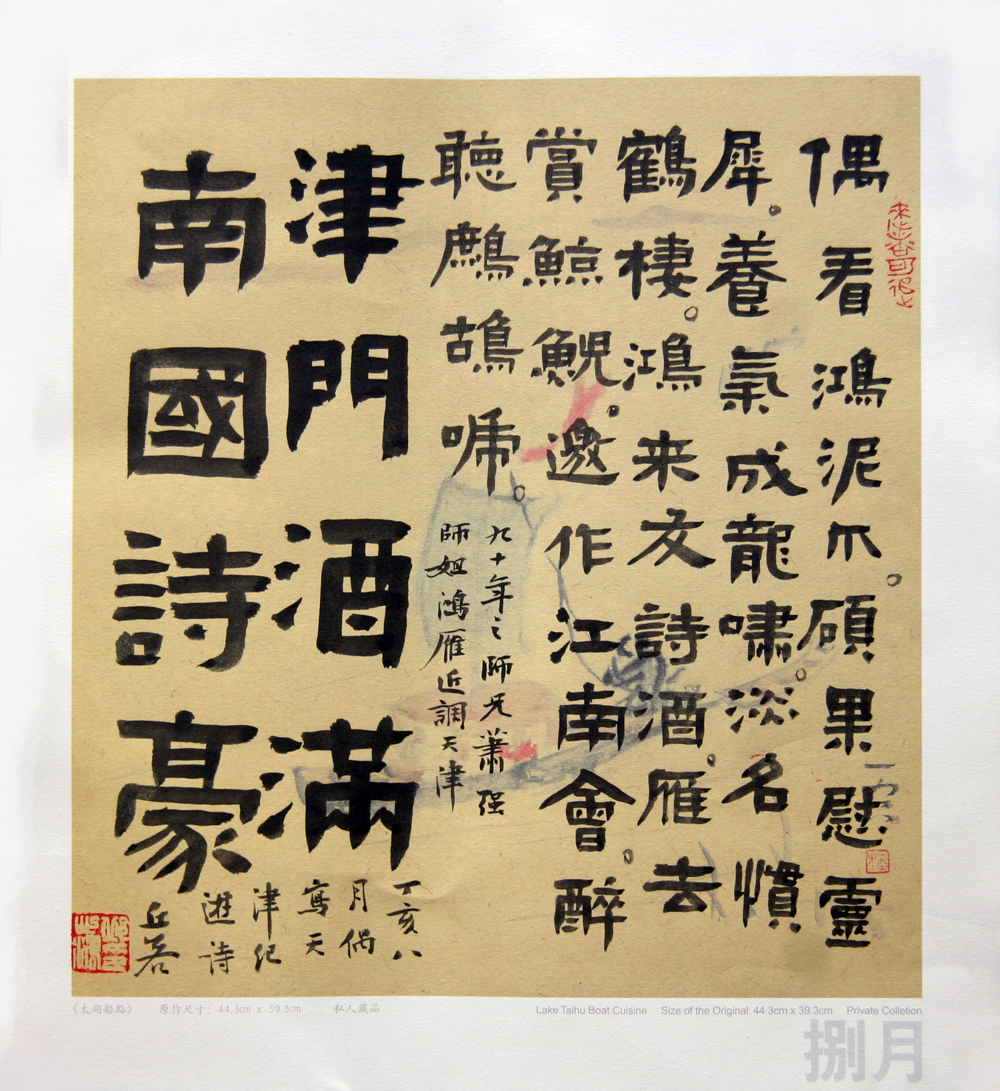 偶看鴻泥爪。碩果慰靈
犀。養氣成龍嘯。淡名慣
鶴棲。鴻来友詩酒。雁去
賞鯨鯢。邀作江南會。醉
聽鷓鴣啼。
九十年之師兄蕭强
師姐鴻雁近調天津
津門酒滿
南國詩豪
丁亥八
月偶
寫天
津纪
遊诗
丘
《太湖船點》 原作尺寸: 44.3cm x 39.3cm 私人藏品
Lake Taihu Boat Cuisine Size of the Original: 44.3cm x 39.3cm Private Colletion
捌月